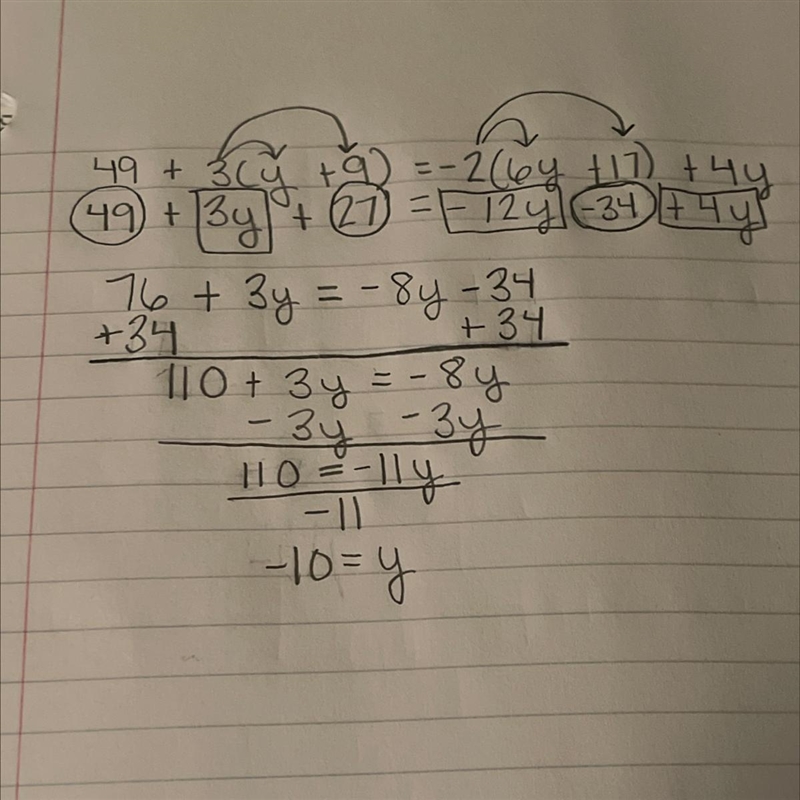 49 + 3(y + 9) = -2(6y + 17) + 4y
49 + 3y + 27 = -12y -34 + 4y
76 + 3y = -8y - 34
+34 + 34
110 + 3y = -8y
- 3y -3y
110 = -11y
-11
-10 = y